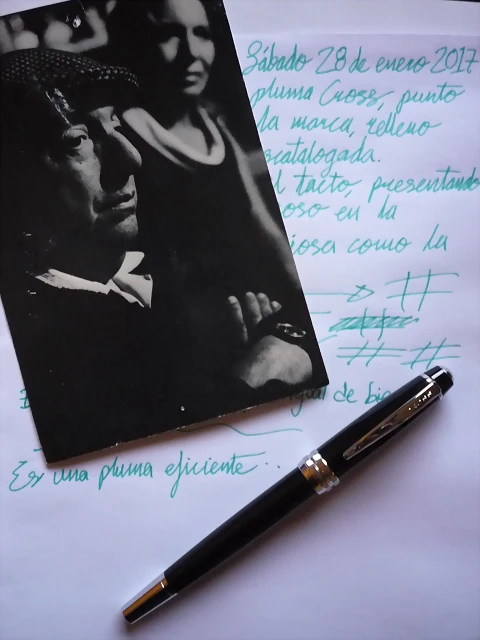 Sábado 28 de enero 2017
pluma Cross, punto
la marca, relleno
scatalogada.
l tacto, presentando
oso en la
iosa como la
igual de bie
Es una pluma eficiente...